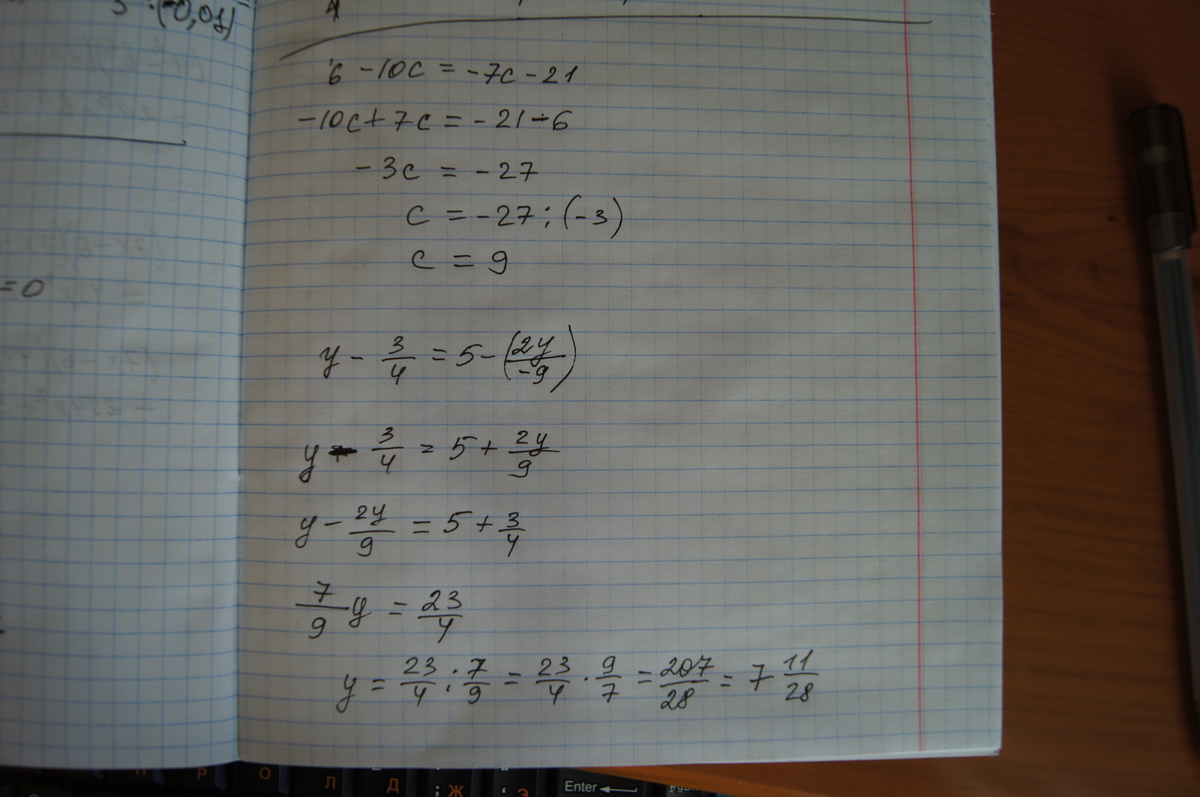 (-0,01)
6 - 10c = -7c - 21
-10c + 7c = -21 - 6
-3c = -27
c = -27 : (-3)
=0
c = 9
y - 3/4 = 5 - (2y/-9)
y - 3/4 = 5 + 2y/9
y - 2y/9 = 5 + 3/4
7/9 y = 23/4
y = 23/4 : 7/9 = 23/4 · 9/7 = 207/28 = 7 11/28
П Р О Л Д ; Ж Э Enter